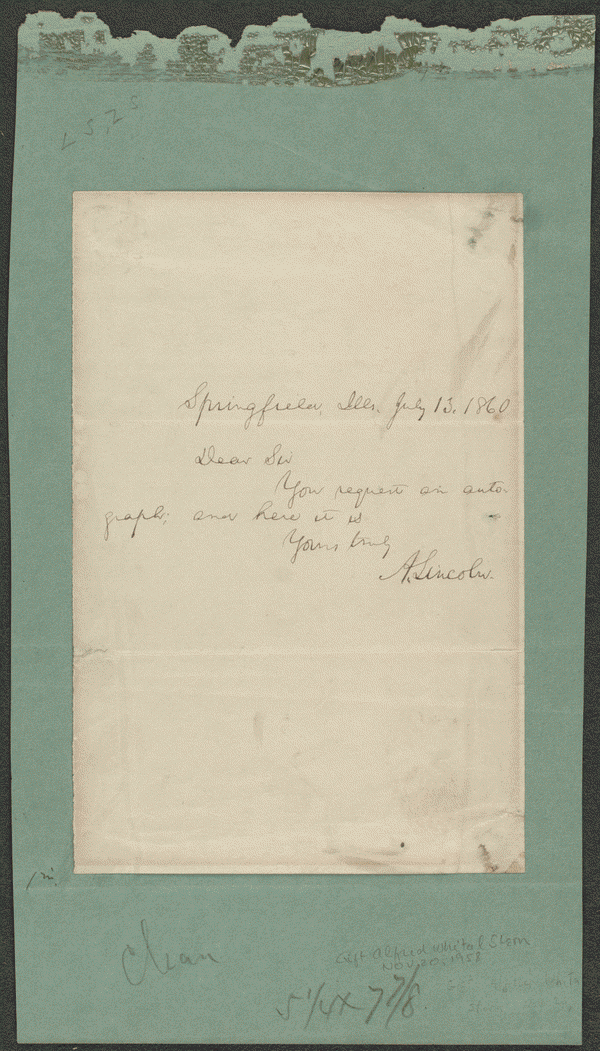 Springfield, Ills. July 13, 1860
Dear Sir
You request an auto-
graph; and here it is
Yours truly
A. Lincoln.
Clean
Gift Alfred Whital Stern
NOV. 20, 1958
5 1/4 x 7 7/8